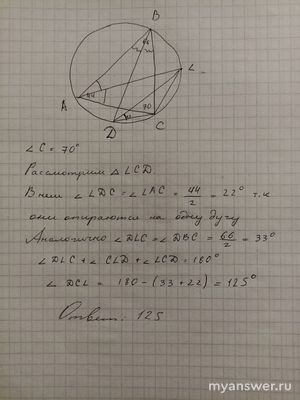 B
66
L
A
44
70
D
C
∠C = 70°
Рассмотрим △LCD.
В нем ∠LDC = ∠LAC = 44/2 = 22° т.к
они опираются на одну дугу
Аналогично ∠DLC = ∠DBC = 66/2 = 33°
∠DLC + ∠CLD + ∠LCD = 180°
∠DCL = 180 - (33 + 22) = 125°
Ответ: 125
myanswer.ru